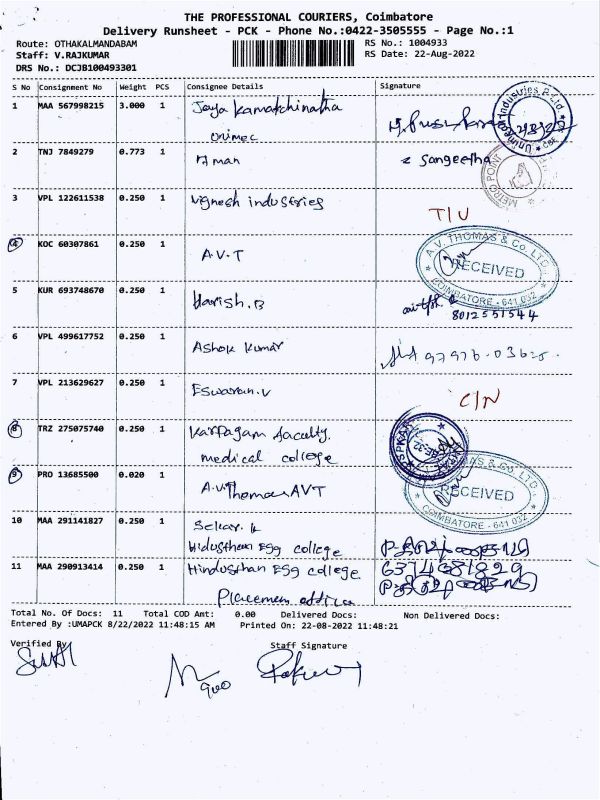 THE PROFESSIONAL COURIERS, Coimbatore
Delivery Runsheet - PCK - Phone No.:0422-3505555 - Page No.:1
Route: OTHAKALMANDABAM RS No.: 1004933
Staff: V.RAJKUMAR RS Date: 22-Aug-2022
DRS No.: DCJB100493301
S No Consignment No Weight PCS Consignee Details Signature
1 MAA 567998215 3.000 1 Jaya Kamatchinatha
Unimec
2 TNJ 7849279 0.773 1 Sangeetha
METRO POINT
3 VPL 122611538 0.250 1 Vignesh industries T/U
4 KOC 60307861 0.250 1 A.V.T A.V. THOMAS & Co. LTD.
RECEIVED
COIMBATORE - 641 032
5 KUR 693748670 0.250 1 Harish.B
8012551544
6 VPL 499617752 0.250 1 Ashok Kumar
7 VPL 213629627 0.250 1 Eswaran.V C/N
8 TRZ 275075740 0.250 1 Karpagam faculty.
medical college
9 PRO 13685500 0.020 1 A.V Thomas AVT RECEIVED
COIMBATORE - 641 032
10 MAA 291141827 0.250 1 Sekar. k
Hidusthan Egg college
11 MAA 290913414 0.250 1 Hindusthan Egg college
Placemen
Total No. Of Docs: 11 Total COD Amt: 0.00 Delivered Docs: Non Delivered Docs:
Entered By :UMAPCK 8/22/2022 11:48:15 AM Printed On: 22-08-2022 11:48:21
Verified By Staff Signature